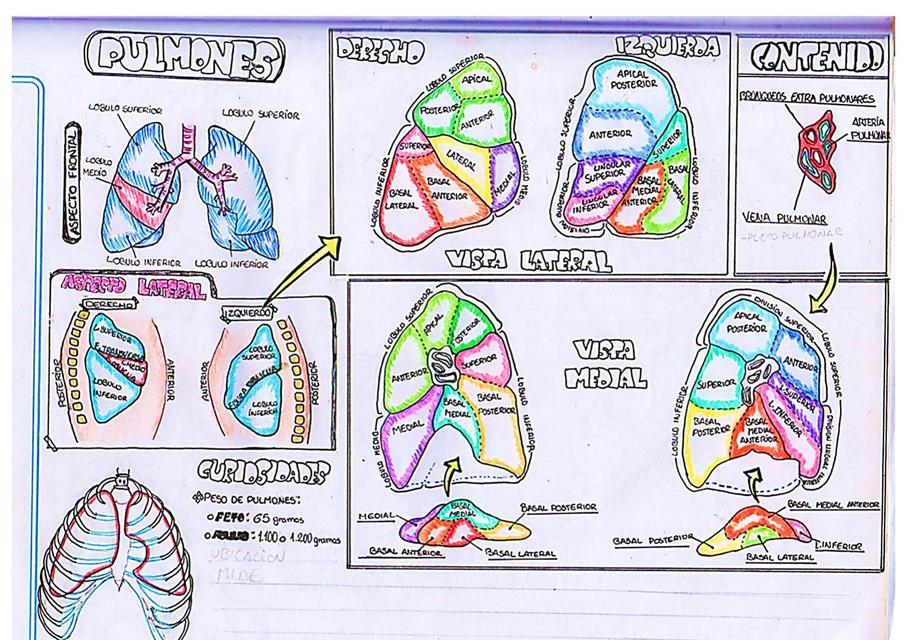 PULMONES
ASPECTO FRONTAL
LOBULO SUPERIOR
LOBULO SUPERIOR
LOBULO
MEDIO
LOBULO INFERIOR
LOBULO INFERIOR
DERECHO
IZQUIERDA
LOBULO SUPERIOR
APICAL
POSTERIOR
ANTERIOR
SUPERIOR
LATERAL
MEDIAL
LOBULO MEDIO
LOBULO INFERIOR
BASAL
LATERAL
BASAL
ANTERIOR
LOBULO SUPERIOR
APICAL
POSTERIOR
ANTERIOR
SUPERIOR
LINGULAR
SUPERIOR
LINGULAR
INFERIOR
BASAL
MEDIAL
ANTERIOR
BASAL
LATERAL
LOBULO INFERIOR
VISTA LATERAL
CONTENIDO
BRONQUEOS EXTRA PULMONARES
ARTERIA
PULMONAR
VENA PULMONAR
ASPECTO LATERAL
DERECHO
IZQUIERDO
POSTERIOR
L.SUPERIOR
LOBULO
INFERIOR
ANTERIOR
ANTERIOR
LOBULO
SUPERIOR
LOBULO
INFERIOR
POSTERIOR
VISTA
MEDIAL
LOBULO SUPERIOR
APICAL
POSTERIOR
ANTERIOR
SUPERIOR
MEDIAL
BASAL
MEDIAL
BASAL
POSTERIOR
LOBULO MEDIO
LOBULO INFERIOR
MEDIAL
BASAL
MEDIAL
BASAL POSTERIOR
BASAL ANTERIOR
BASAL LATERAL
DIVISIÓN SUPERIOR
LOBULO SUPERIOR
APICAL
POSTERIOR
ANTERIOR
SUPERIOR
L.SUPERIOR
L.INFERIOR
BASAL
POSTERIOR
BASAL
MEDIAL
ANTERIOR
LOBULO INFERIOR
BASAL MEDIAL ANTERIOR
BASAL POSTERIOR
L.INFERIOR
BASAL LATERAL
CURIOSIDADES
PESO DE PULMONES:
FETO: 65 gramos
1.100 o 1.200 gramos
UBICACIÓN
MIDE